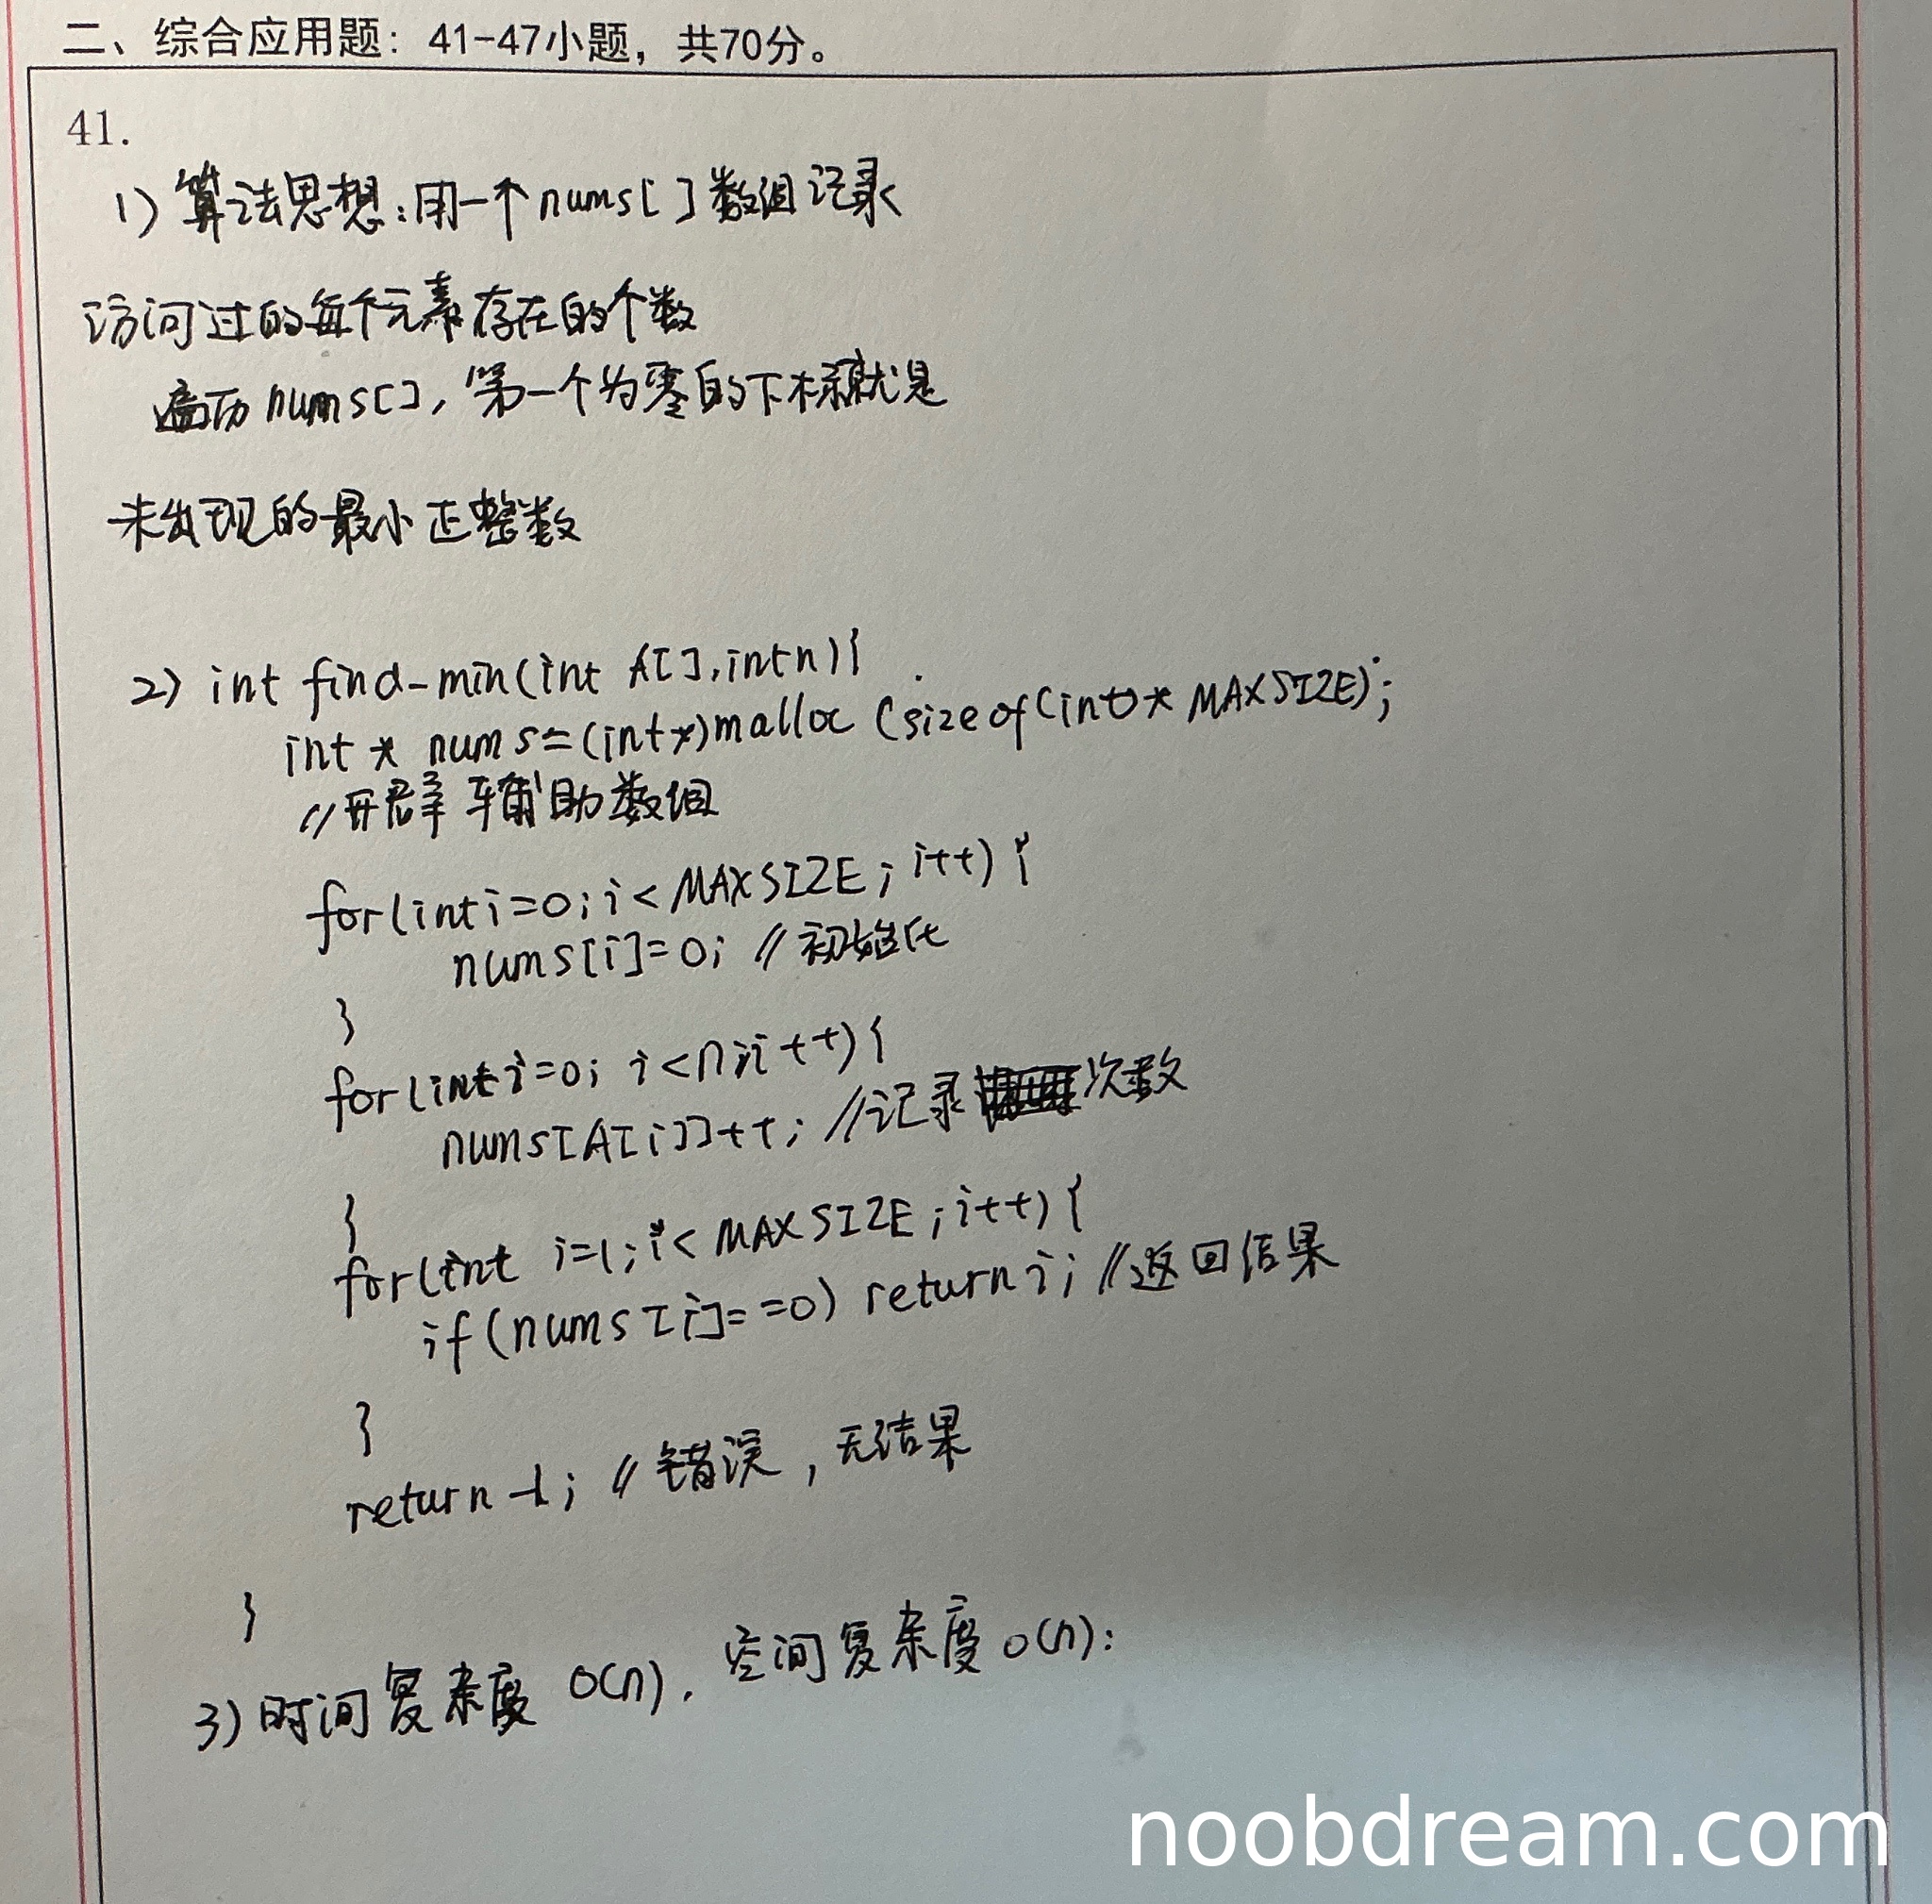 二、综合应用题：41-47小题，共70分。
41.
1) 算法思想:用一个nums[ ]数组记录
访问过的每个元素存在的个数
遍历nums[], 第一个为零的下标就是
未出现的最小正整数
2) int find-min(int A[], int n){
int * nums=(int*)malloc (sizeof(int)* MAXSIZE);
//开辟 辅助数组
for(int i=0; i< MAXSIZE; i++) {
nums[i]=0; //初始化
}
for(int i=0; i<n; i++){
nums[A[i]]++; //记录次数
}
for(int i=1; i< MAXSIZE; i++){
if(nums[i]==0) return i; //返回结果
}
return -1; //错误, 无结果
}
3) 时间复杂度 O(n). 空间复杂度 O(n):
noobdream.com